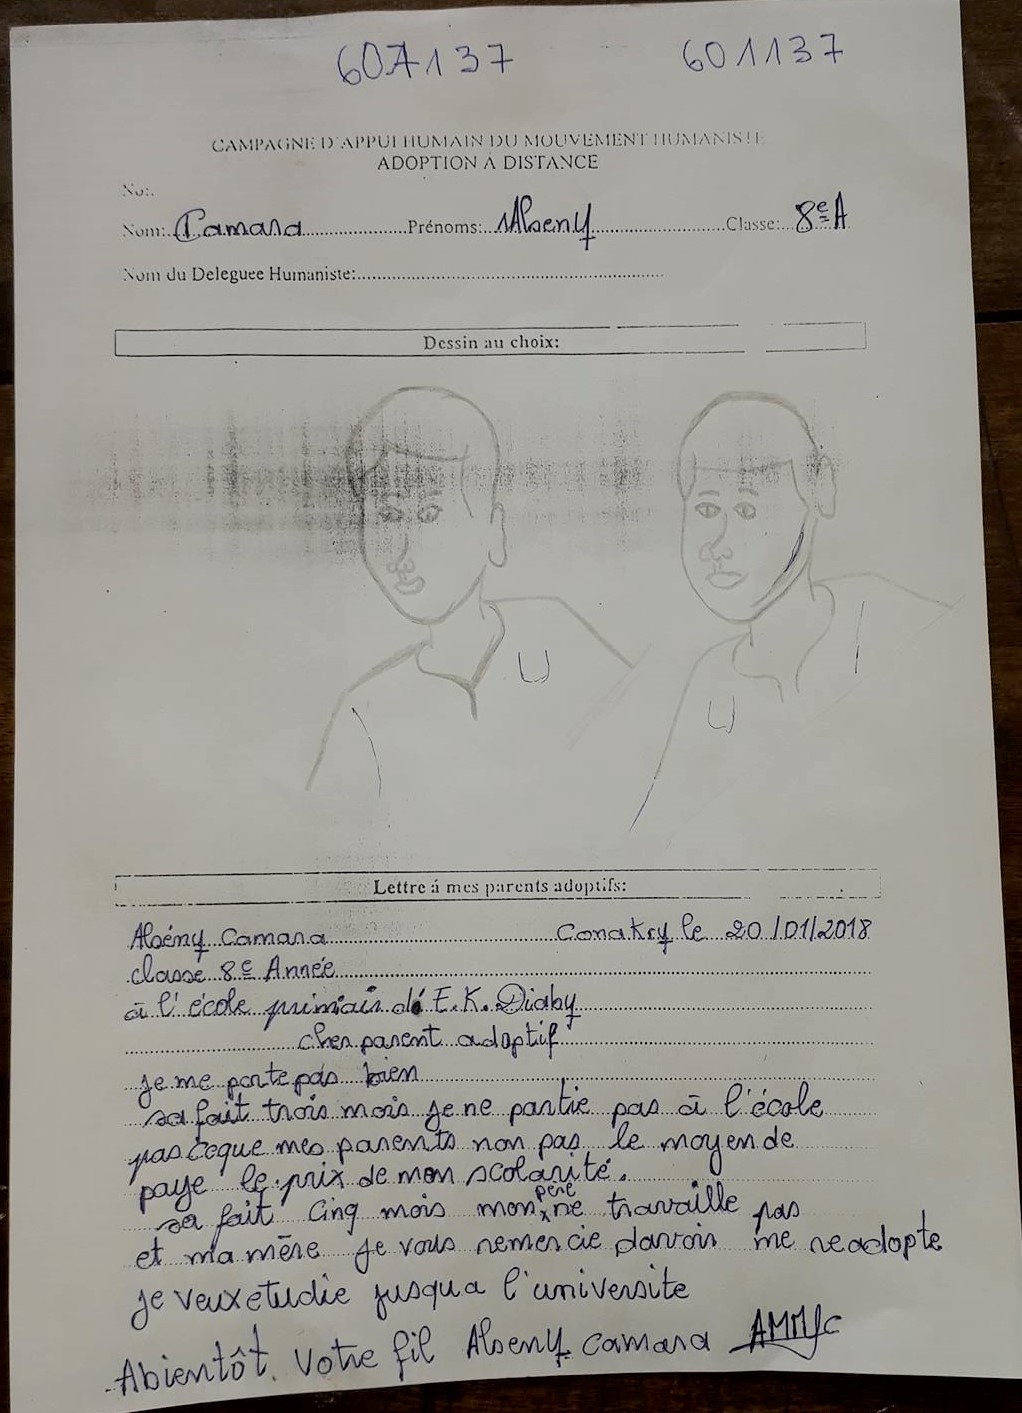 607137 601137
CAMPAGNE D'APPUI HUMAIN DU MOUVEMENT HUMANISTE
ADOPTION Á DISTANCE
No:.
Nom: Camara Prénoms: Alseny Classe: 8e A
Nom du Deleguee Humaniste:
Dessin au choix:
Lettre á mes parents adoptifs:
Alsény Camara Conakry le 20/01/2018
classe 8e Année
à l'école primiais dé E.K. Diaby
cher parent adoptif
je me porte pas bien
sa fait trois mois je ne partie pas à l'école
parceque mes parents non pas le moyen de
paye le prix de mon scolarité.
sa fait cinq mois mon père ne travaille pas
et ma mère je vous remercie davoir me readopte
je veux etudie jusqua l'universite
Abientôt. Votre fil Alseny camara